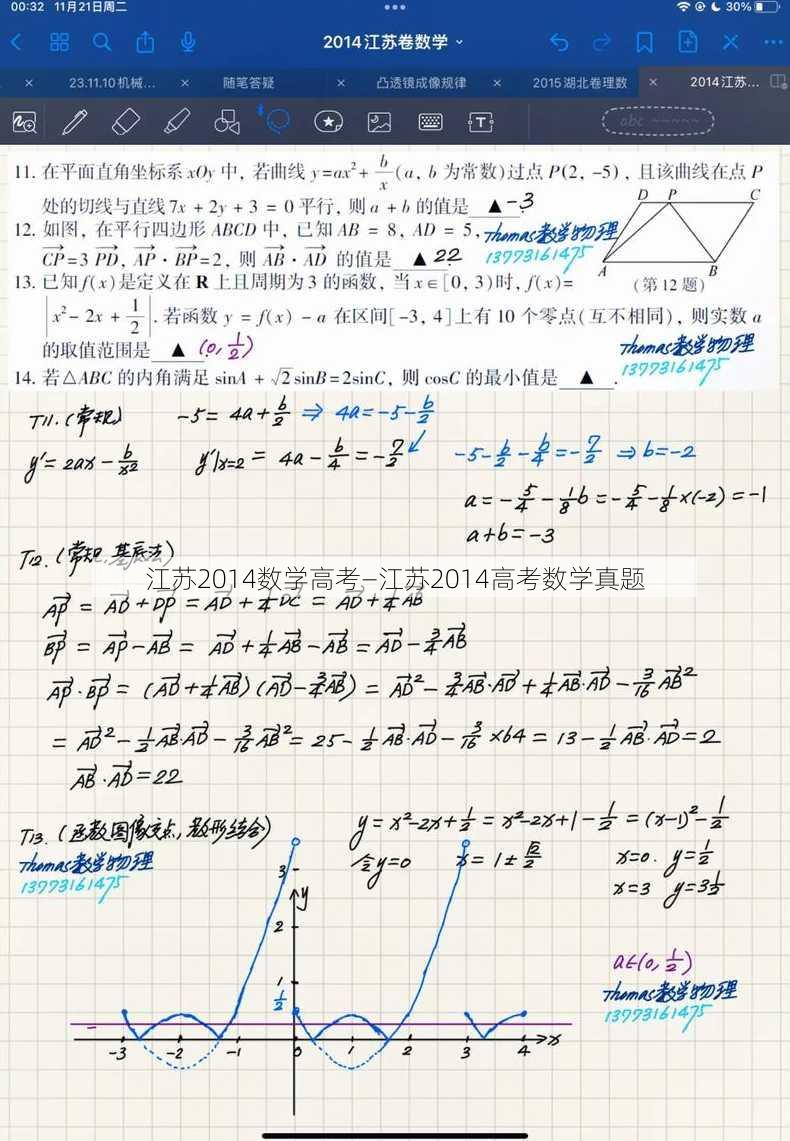 00:32 11月21日周二
30%
2014江苏卷数学
23.11.10机械...
随笔答疑
凸透镜成像规律
2015湖北卷理数
2014江苏...
abc
11. 在平面直角坐标系 xOy 中, 若曲线 y=ax²+b/x (a, b 为常数)过点 P(2, -5), 且该曲线在点 P
处的切线与直线 7x + 2y + 3 = 0 平行, 则 a + b 的值是 ▲ -3.
12. 如图, 在平行四边形 ABCD 中, 已知 AB = 8, AD = 5,
CP=3 PD, AP · BP=2, 则 AB · AD 的值是 ▲ 22.
Thomas数学物理
13773161475
D P C
A B
(第12题)
13. 已知 f(x) 是定义在 R 上且周期为3 的函数, 当 x∈[0, 3)时, f(x)=
|x²- 2x + 1/2|. 若函数 y = f(x) - a 在区间[-3, 4]上有10个零点(互不相同), 则实数 a
的取值范围是 ▲ (0, 1/2)
Thomas数学物理
13773161475
14. 若△ABC 的内角满足 sinA + √2 sinB=2sinC, 则 cosC 的最小值是 ▲ .
T11. (常规) -5 = 4a+b/2 ⇒ 4a=-5-b/2
y'= 2ax - b/x² y'|x=2 = 4a - b/4 = -7/2 -5-b/2-b/4=-7/2 ⇒ b=-2
a=-5/4-1/8b=-5/4-1/8×(-2)=-1
a+b=-3
T12. (常规. 基底法)
江苏2014数学高考—江苏2014高考数学真题
AP = AD+DP = AD+1/4DC = AD+1/4AB
BP = AP-AB = AD+1/4AB-AB = AD-3/4AB
AP·BP = (AD+1/4AB)(AD-3/4AB) = AD²-3/4AB·AD+1/4AB·AD-3/16AB²
= AD²-1/2AB·AD-3/16AB²=25-1/2AB·AD-3/16×64=13-1/2AB·AD=2
AB·AD=22
T13. (函数图像交点, 数形结合)
y=x²-2x+1/2 = x²-2x+1-1/2 = (x-1)²-1/2
Thomas数学物理
13773161475
令y=0 x=1±√2/2
x=0. y=1/2
x=3 y=3 1/2
3
y
2
1
1/2
a∈(0, 1/2)
Thomas数学物理
13773161475
-3 -2 -1 0 1 2 3 4 x